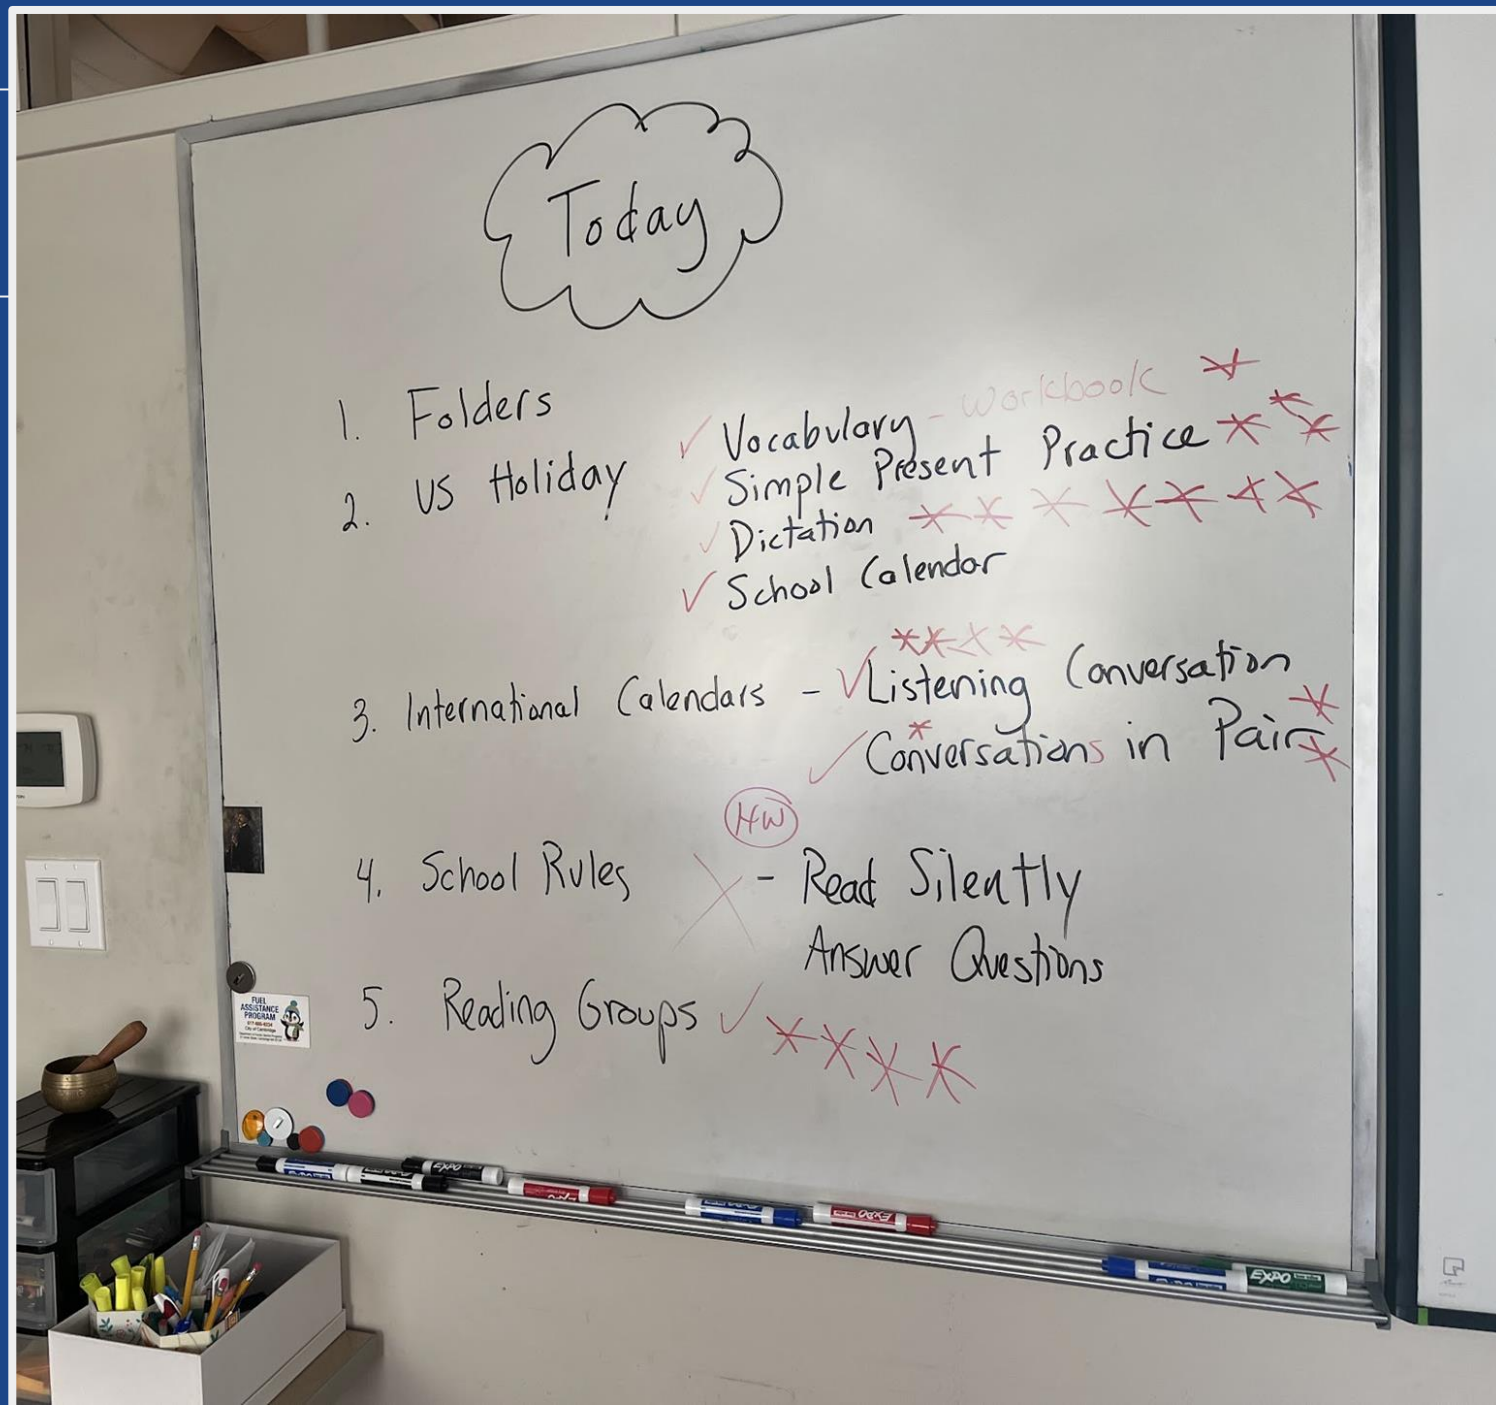 Today
1. Folders
2. US Holiday
✓ Vocabulary - Workbook *
✓ Simple Present Practice * * *
✓ Dictation * * * * * * *
✓ School Calendar
* * * *
3. International Calendars - ✓ Listening Conversation *
*
✓ Conversations in Pairs *
HW
4. School Rules X - Read Silently
Answer Questions
5. Reading Groups ✓ * * * *
FUEL
ASSISTANCE
PROGRAM
City of Cambridge
EXPO
EXPO
EXPO